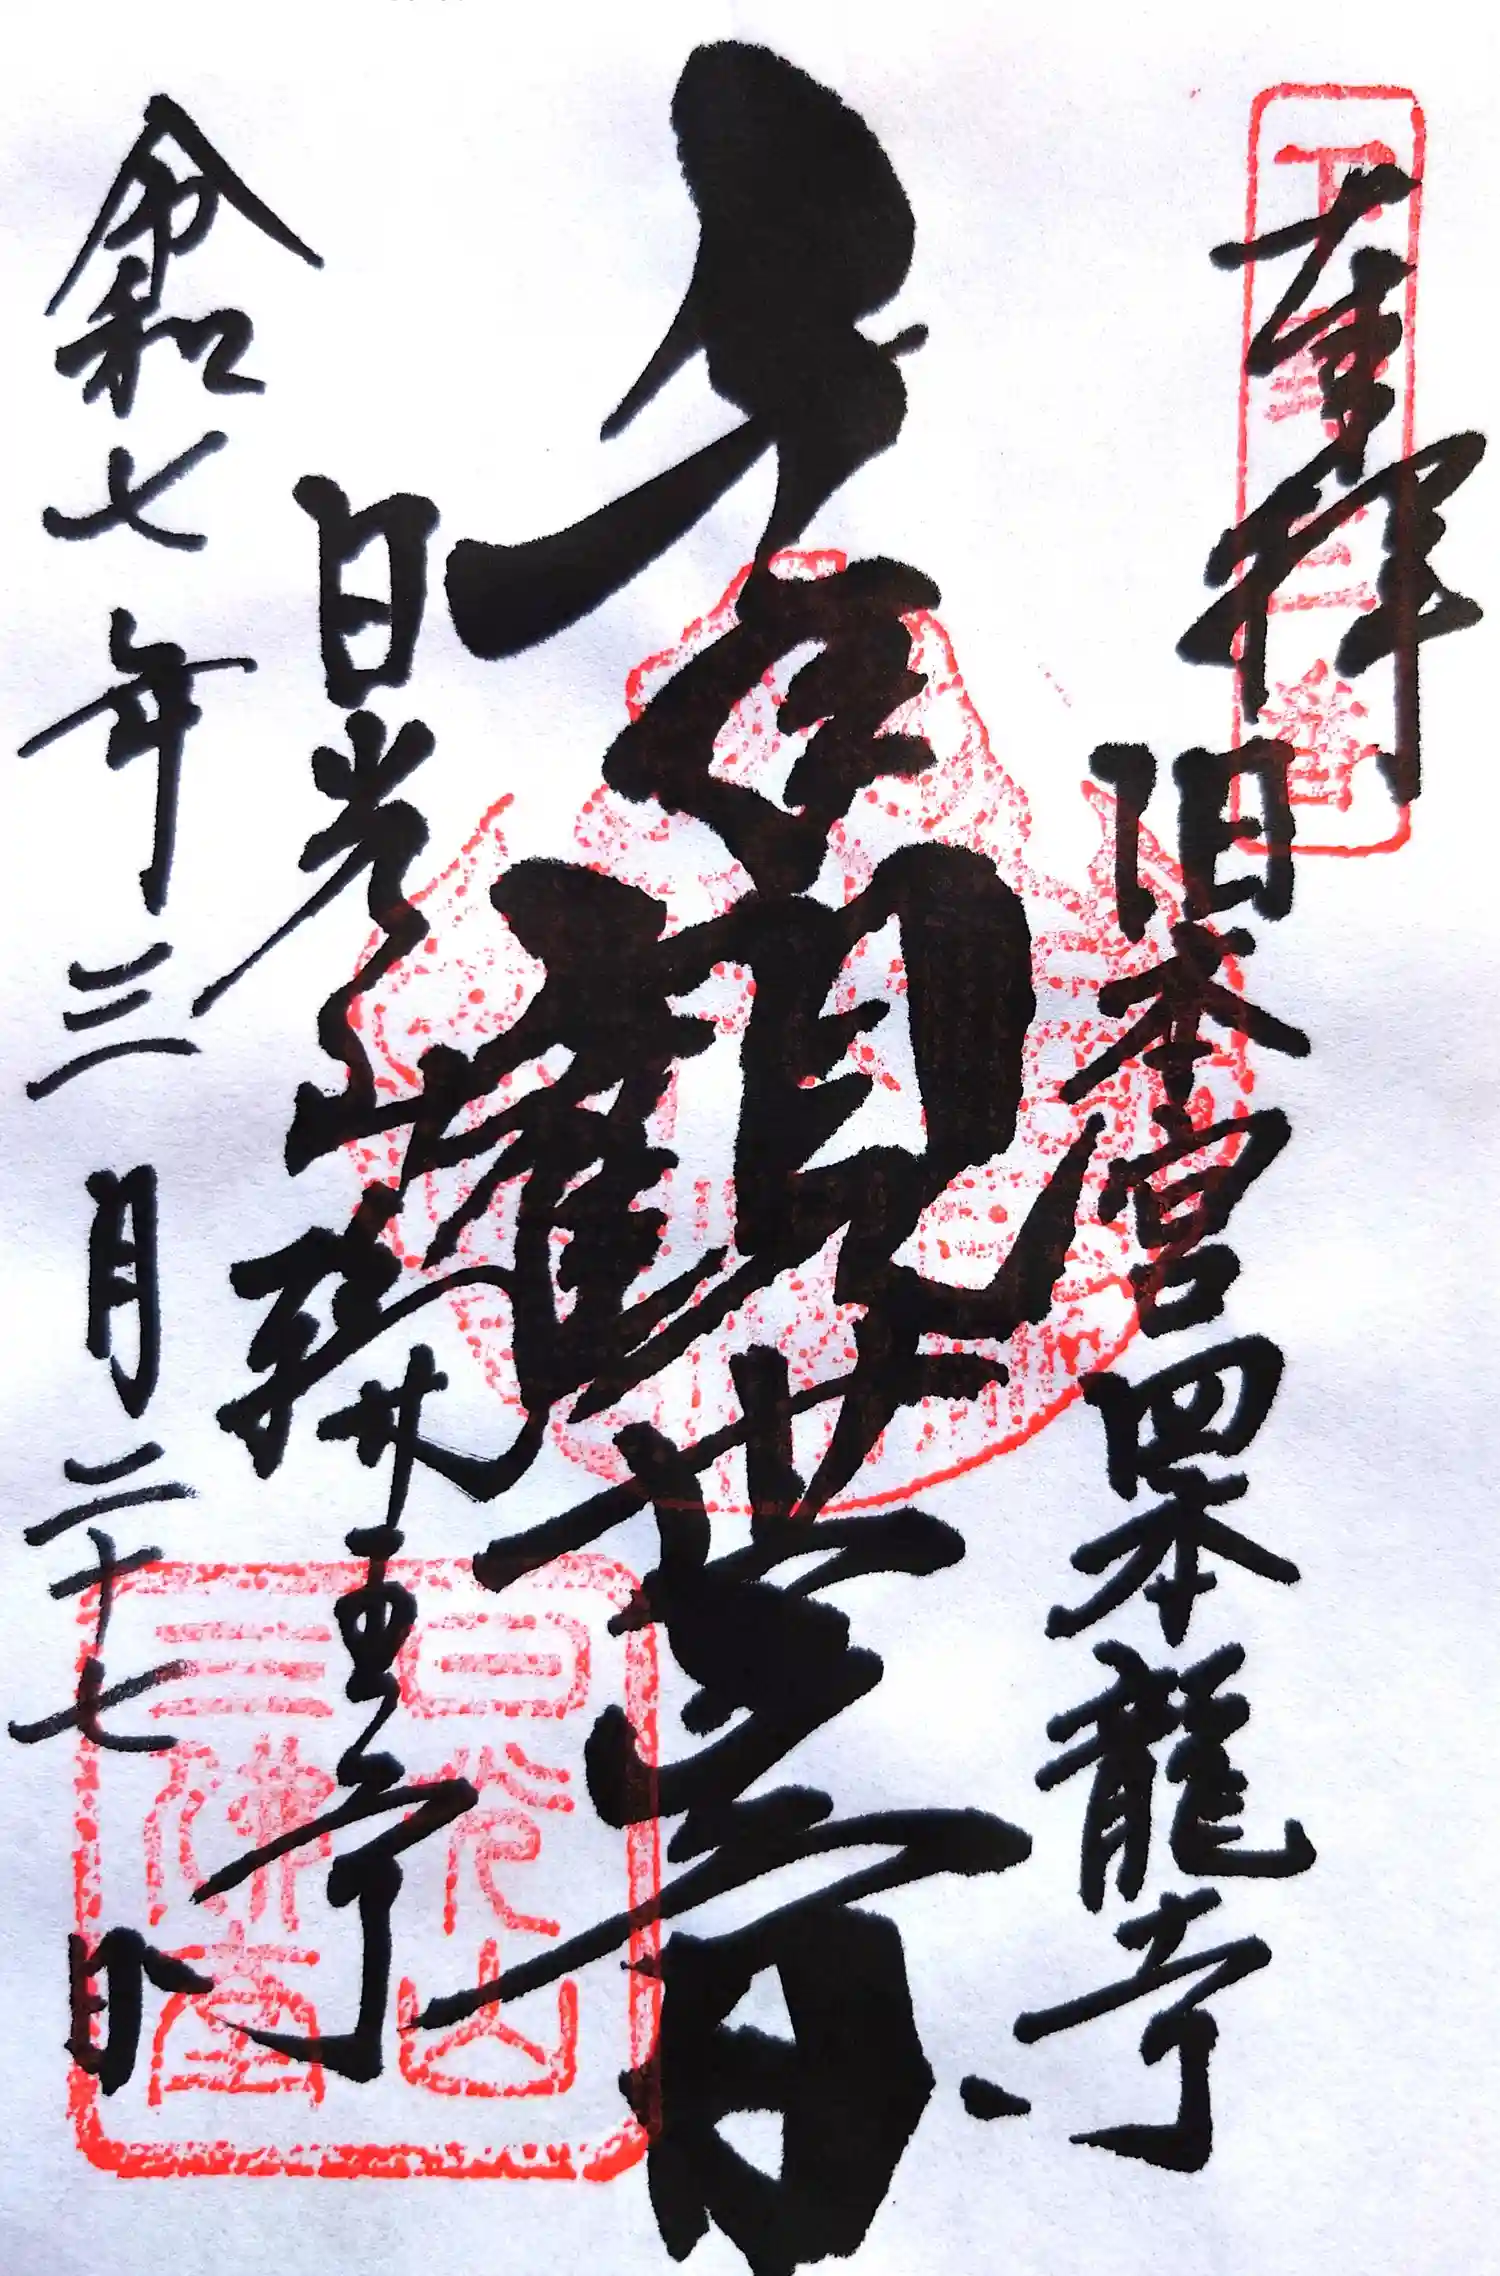 奉拝
旧本宮四本龍寺
千手観世音
日光山輪王寺
令和七年三月二十七日
日光山
三佛堂